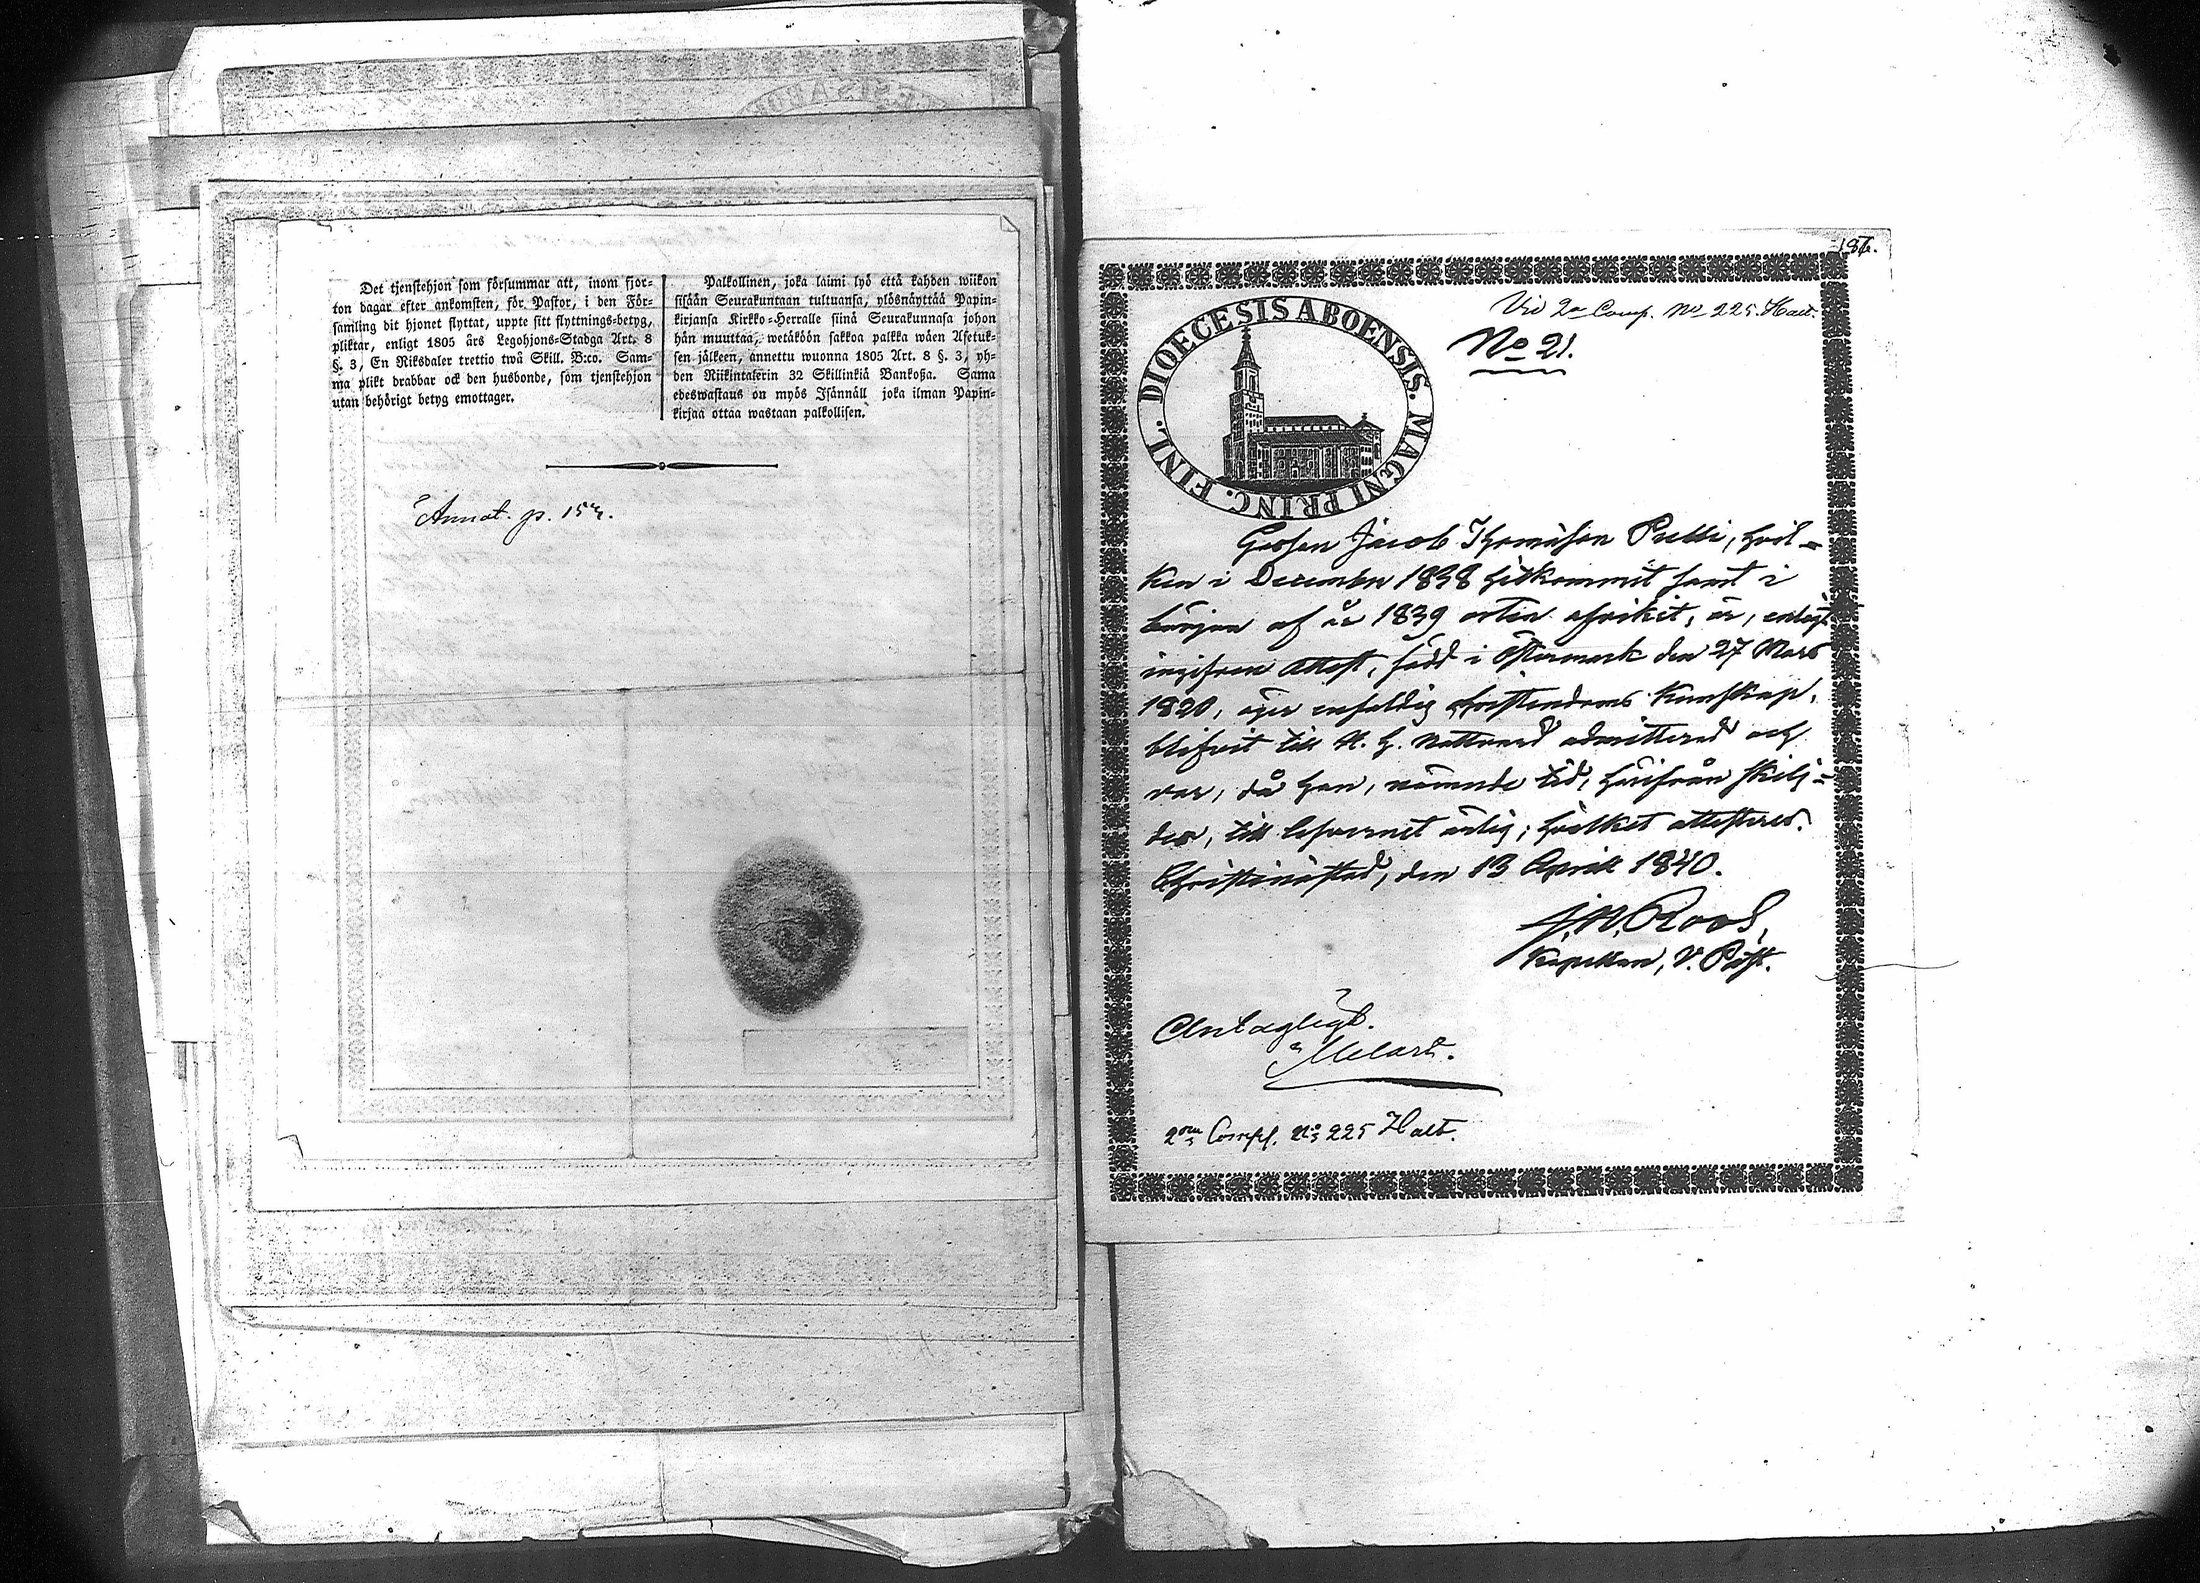 Det tjenstehjon som försummar att, inom fjor-
ton dagar efter ankomsten, för Pastor, i den För-
samling dit hjonet flyttat, uppte sitt flyttnings-betyg,
pliktar, enligt 1805 års Legohjons-Stadga Art. 8
§. 3, En Riksdaler trettio twå Skill. B:co. Sam-
ma plikt drabbar ock den husbonde, som tjenstehjon
utan behörigt betyg emottager.
Palkollinen, joka laimi lyö että kahden wiikon
sisään Seurakuntaan tultuansa, ylösnäyttää Papin-
kirjansa Kirkko-Herralle siinä Seurakunnasa johon
hän muuttaa, wetäköön sakkoa palkka wäen Asetuk-
sen jälkeen, annettu wuonna 1805 Art. 8 §. 3, yh-
den Riikintalerin 32 Skillinkiä Bankoßa. Sama
edeswastaus on myös Isännäll joka ilman Papin-
kirjaa ottaa wastaan palkollisen.
Annot. p. 157.
187.
Vid 2a Comp. No 225. Halt.
No 21.
DIOECESIS ABOENSIS. MAGNI PRINC. FINL.
Gossen Jacob Thomasson Pelli, hvil-
ken i December 1838 hitkommit samt i
början af år 1839 orten afvikit, är, enligt
ingifven attest, född i Östermark den 27 Mars
1820, äger enfaldig christendoms kunskap,
blifvit till H. H. Nattvard admitterad och
var, då han, nämnde tid, härifrån skilj-
des, till lefvernet ärlig; hvilket attesteras.
Christinæstad, den 13 April 1840.
J. N. Roos,
Kapellan, V. Past.
Antagligt.
Melart.
2dra Comp. No 225 Halt.